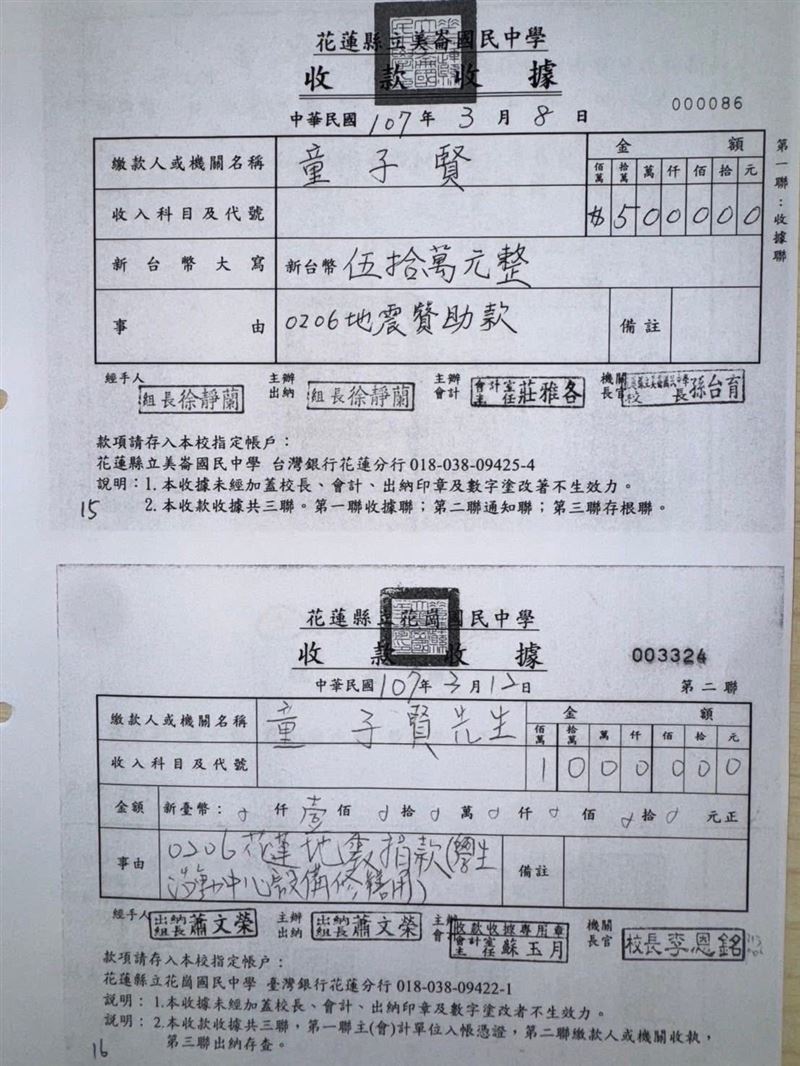 花蓮縣立美崙國民中學
收款收據
000086
中華民國107年3月8日
繳款人或機關名稱 童子賢 金額
佰萬 拾萬 萬 仟 佰 拾 元
收入科目及代號 $500000
新台幣大寫 新台幣 伍拾萬元整
事由 0206地震贊助款 備註
第一聯:收據聯
經手人 組長徐靜蘭 主辦出納 組長徐靜蘭 主辦會計 會計室主任莊雅各 機關長官 校長孫台育
款項請存入本校指定帳戶:
花蓮縣立美崙國民中學 台灣銀行花蓮分行 018-038-09425-4
說明:1.本收據未經加蓋校長、會計、出納印章及數字塗改著不生效力。
2.本收款收據共三聯。第一聯收據聯;第二聯通知聯;第三聯存根聯。
15
花蓮縣立花崗國民中學
收款收據
003324
中華民國107年3月12日 第二聯
繳款人或機關名稱 童子賢先生 金額
佰萬 拾萬 萬 仟 佰 拾 元
收入科目及代號 1000000
金額 新臺幣: 0仟壹佰0拾0萬0仟0佰0拾0元正
事由 0206花蓮地震捐款(學生
活動中心設備修繕用) 備註
經手人 出納組長蕭文榮 主辦出納 出納組長蕭文榮 主辦會計 收款收據專用章 會計室主任蘇玉月 機關長官 校長李恩銘
款項請存入本校指定帳戶:
花蓮縣立花崗國民中學 臺灣銀行花蓮分行 018-038-09422-1
說明: 1.本收據未經加蓋校長、會計、出納印章及數字塗改者不生效力。
說明: 2.本收款收據共三聯,第一聯主(會)計單位入帳憑證,第二聯繳款人或機關收執,
第三聯出納存查。
16